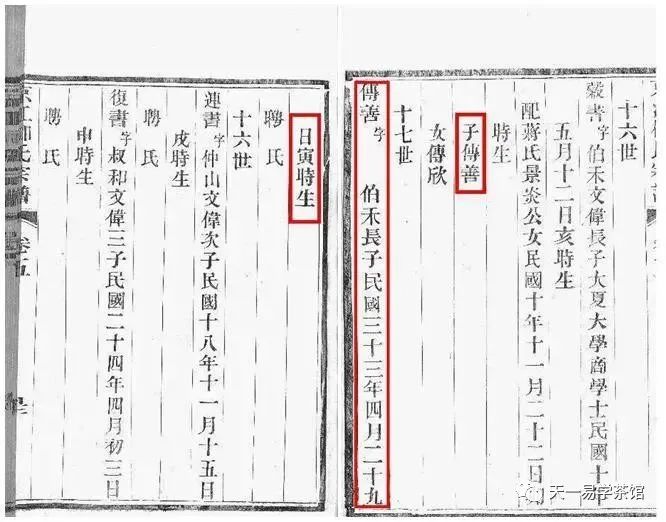 十六世
穀書字伯禾文偉長子大夏大學商學士民國十
五月十二日亥時生
配蔣氏景炎公女民國十年十一月二十二日
時生
子傳善
女傳欣
十七世
傳善字 伯禾長子民國三十三年四月二十九
日寅時生
聘 氏
十六世
連書字仲山文偉次子民國十八年十一月十五日
戌時生
聘 氏
復書字叔和文偉三子民國二十四年四月初三日
申時生
聘 氏
氏宗譜
天一易学茶馆